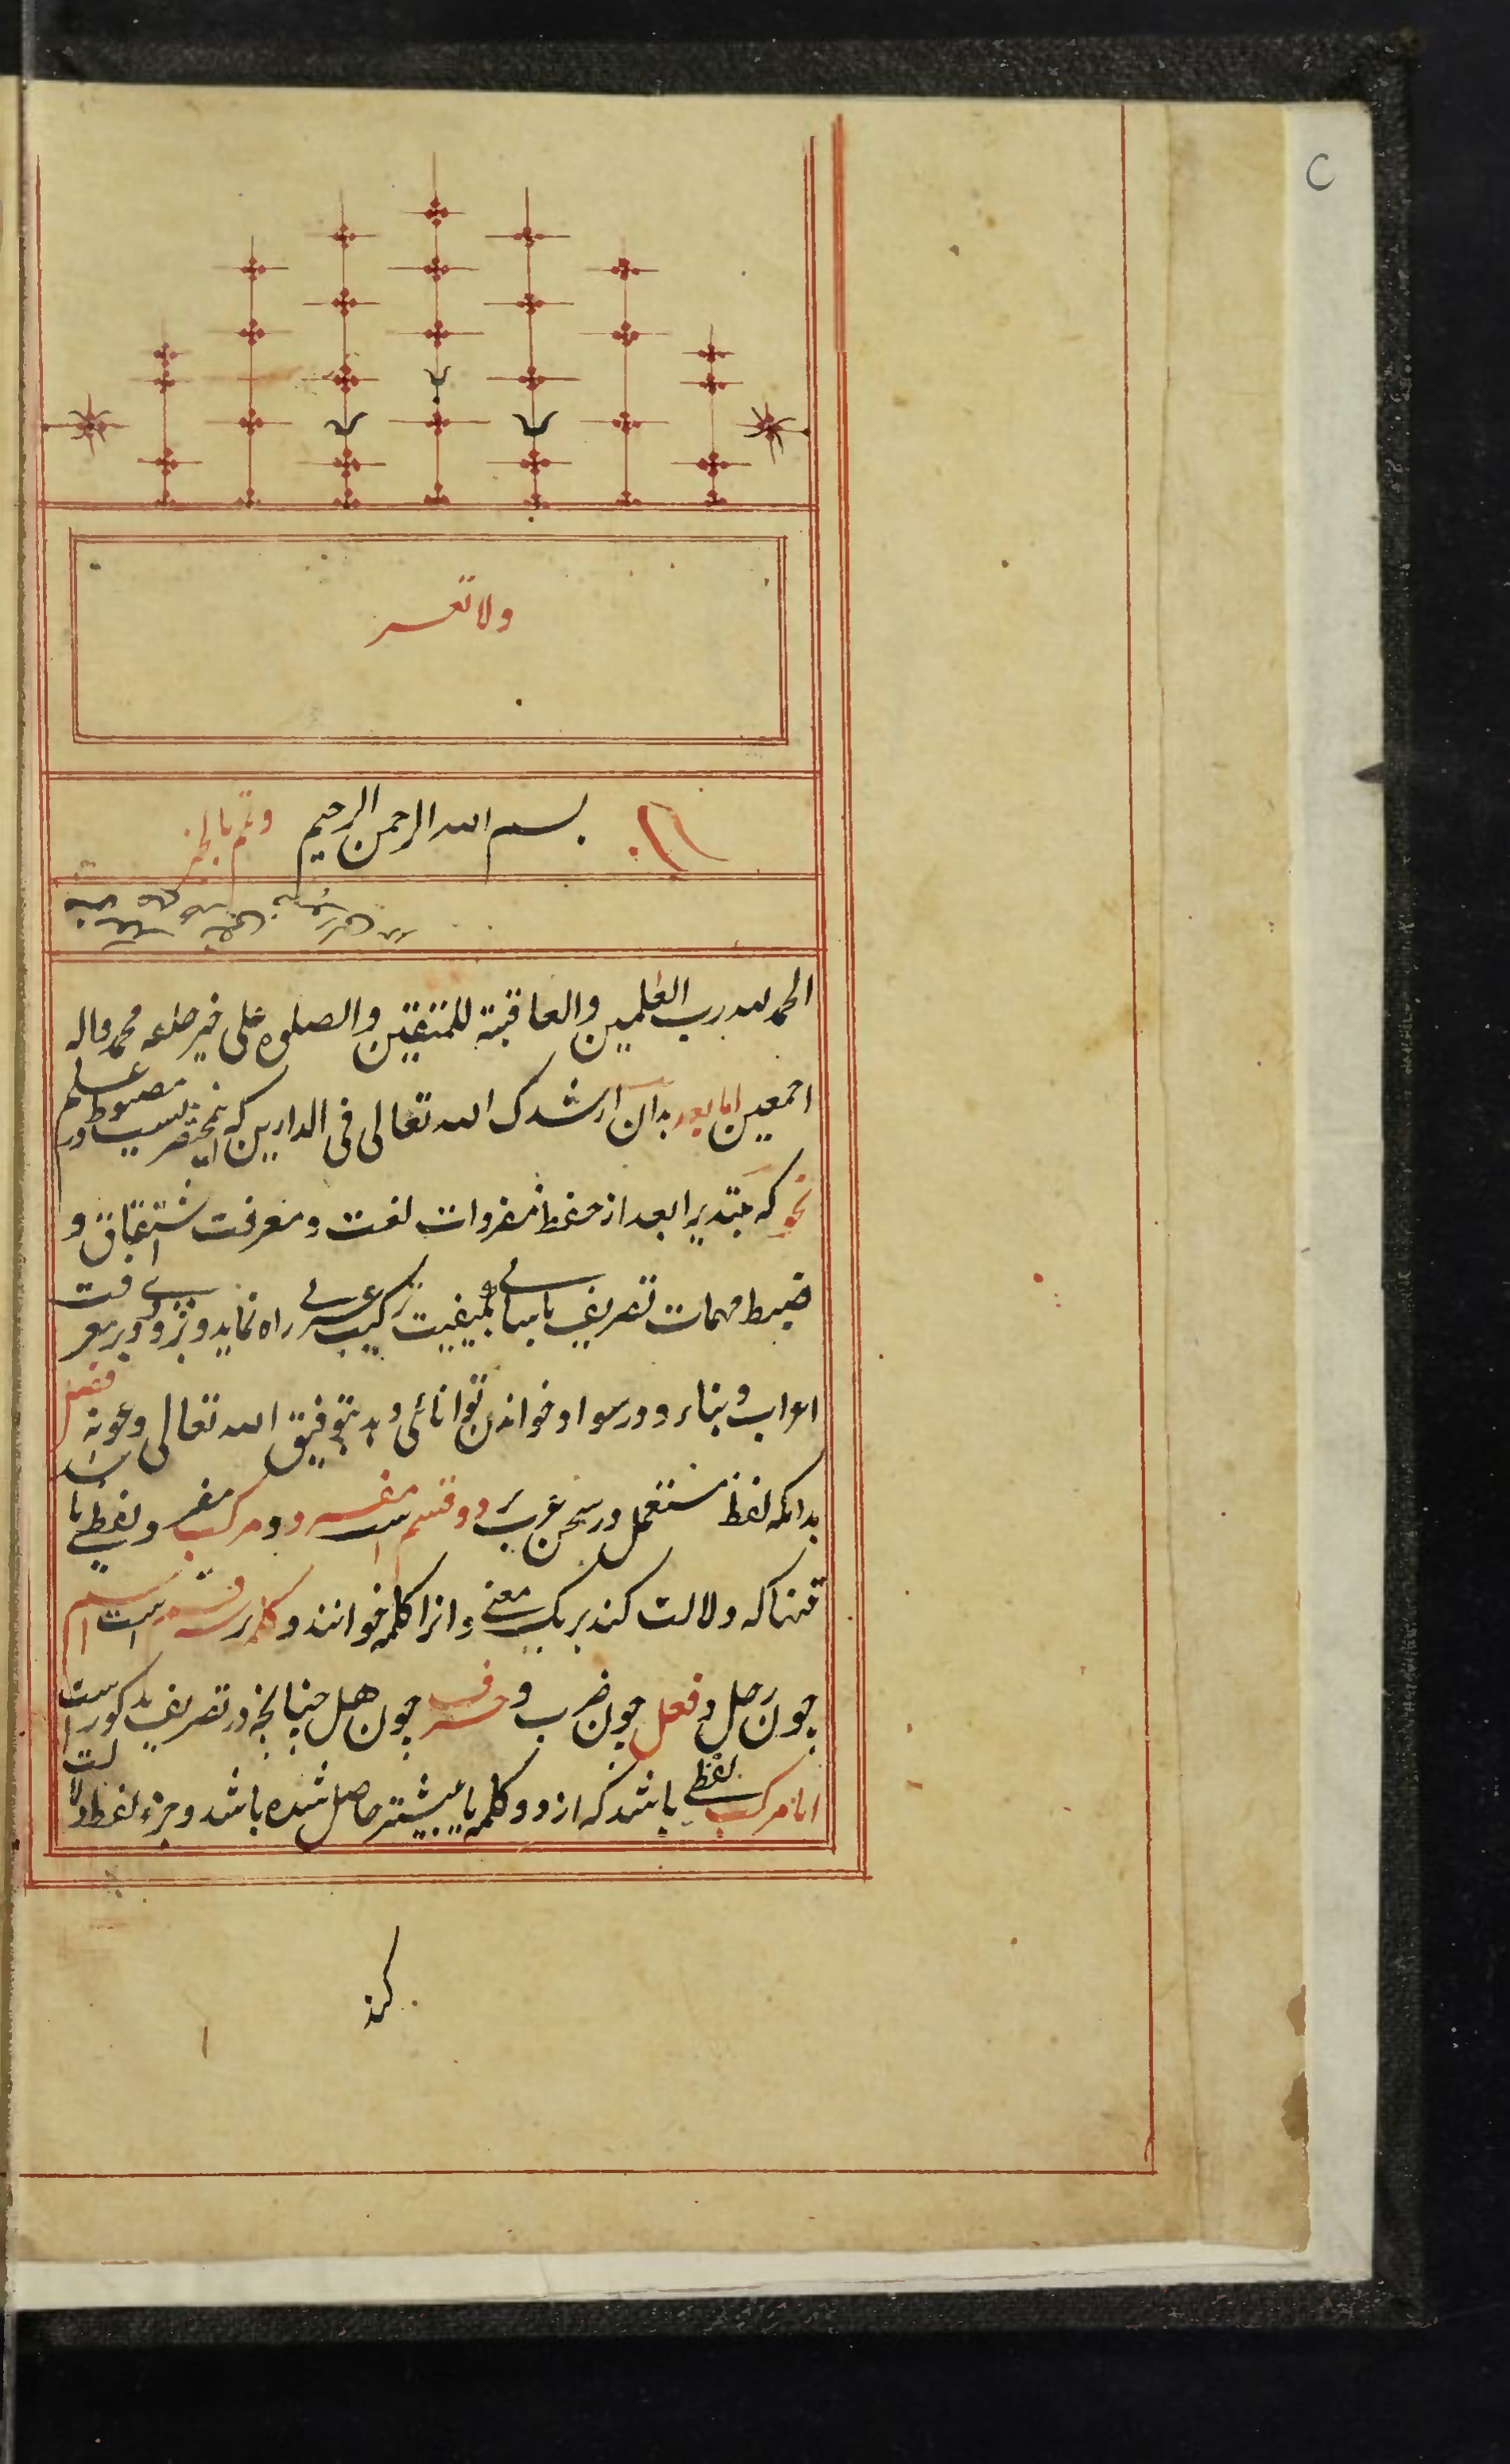 C
ولا تعسر
بسم الله الرحمن الرحيم وتمم بالخير
الحمد لله رب العلمين والعاقبة للمتقين والصلوة على خير خلقه محمد واله
اجمعين اما بعد بدان ارشدك الله تعالى فى الدارين كه اين مختصريست مضبوط در علم
نحو كه مبتدى را بعد از حفظ مفردات لغت و معرفت اشتقاق و
ضبط مهمات تصريف باسانى بكيفيت تركيب عربى راه نمايد و بزودى در معرفت
اعراب و بناء و در سواد خواندن توانائى دهد بتوفيق الله تعالى و عونه فصل
بدانكه لفظ مستعمل در سخن عرب بر دو قسم است مفرد و مركب مفرد لفظى باشد
تنها كه دلالت كند بر يك معنى و انرا كلمه خوانند و كلمه بر سه قسم است اسم
چون رجل و فعل چون ضرب و حرف چون هل چنانچه در تصريف مذكور است
اما مركب لفظى باشد كه از دو كلمه يا بيشتر حاصل شده باشد و جزء لفظ دلالت
كند